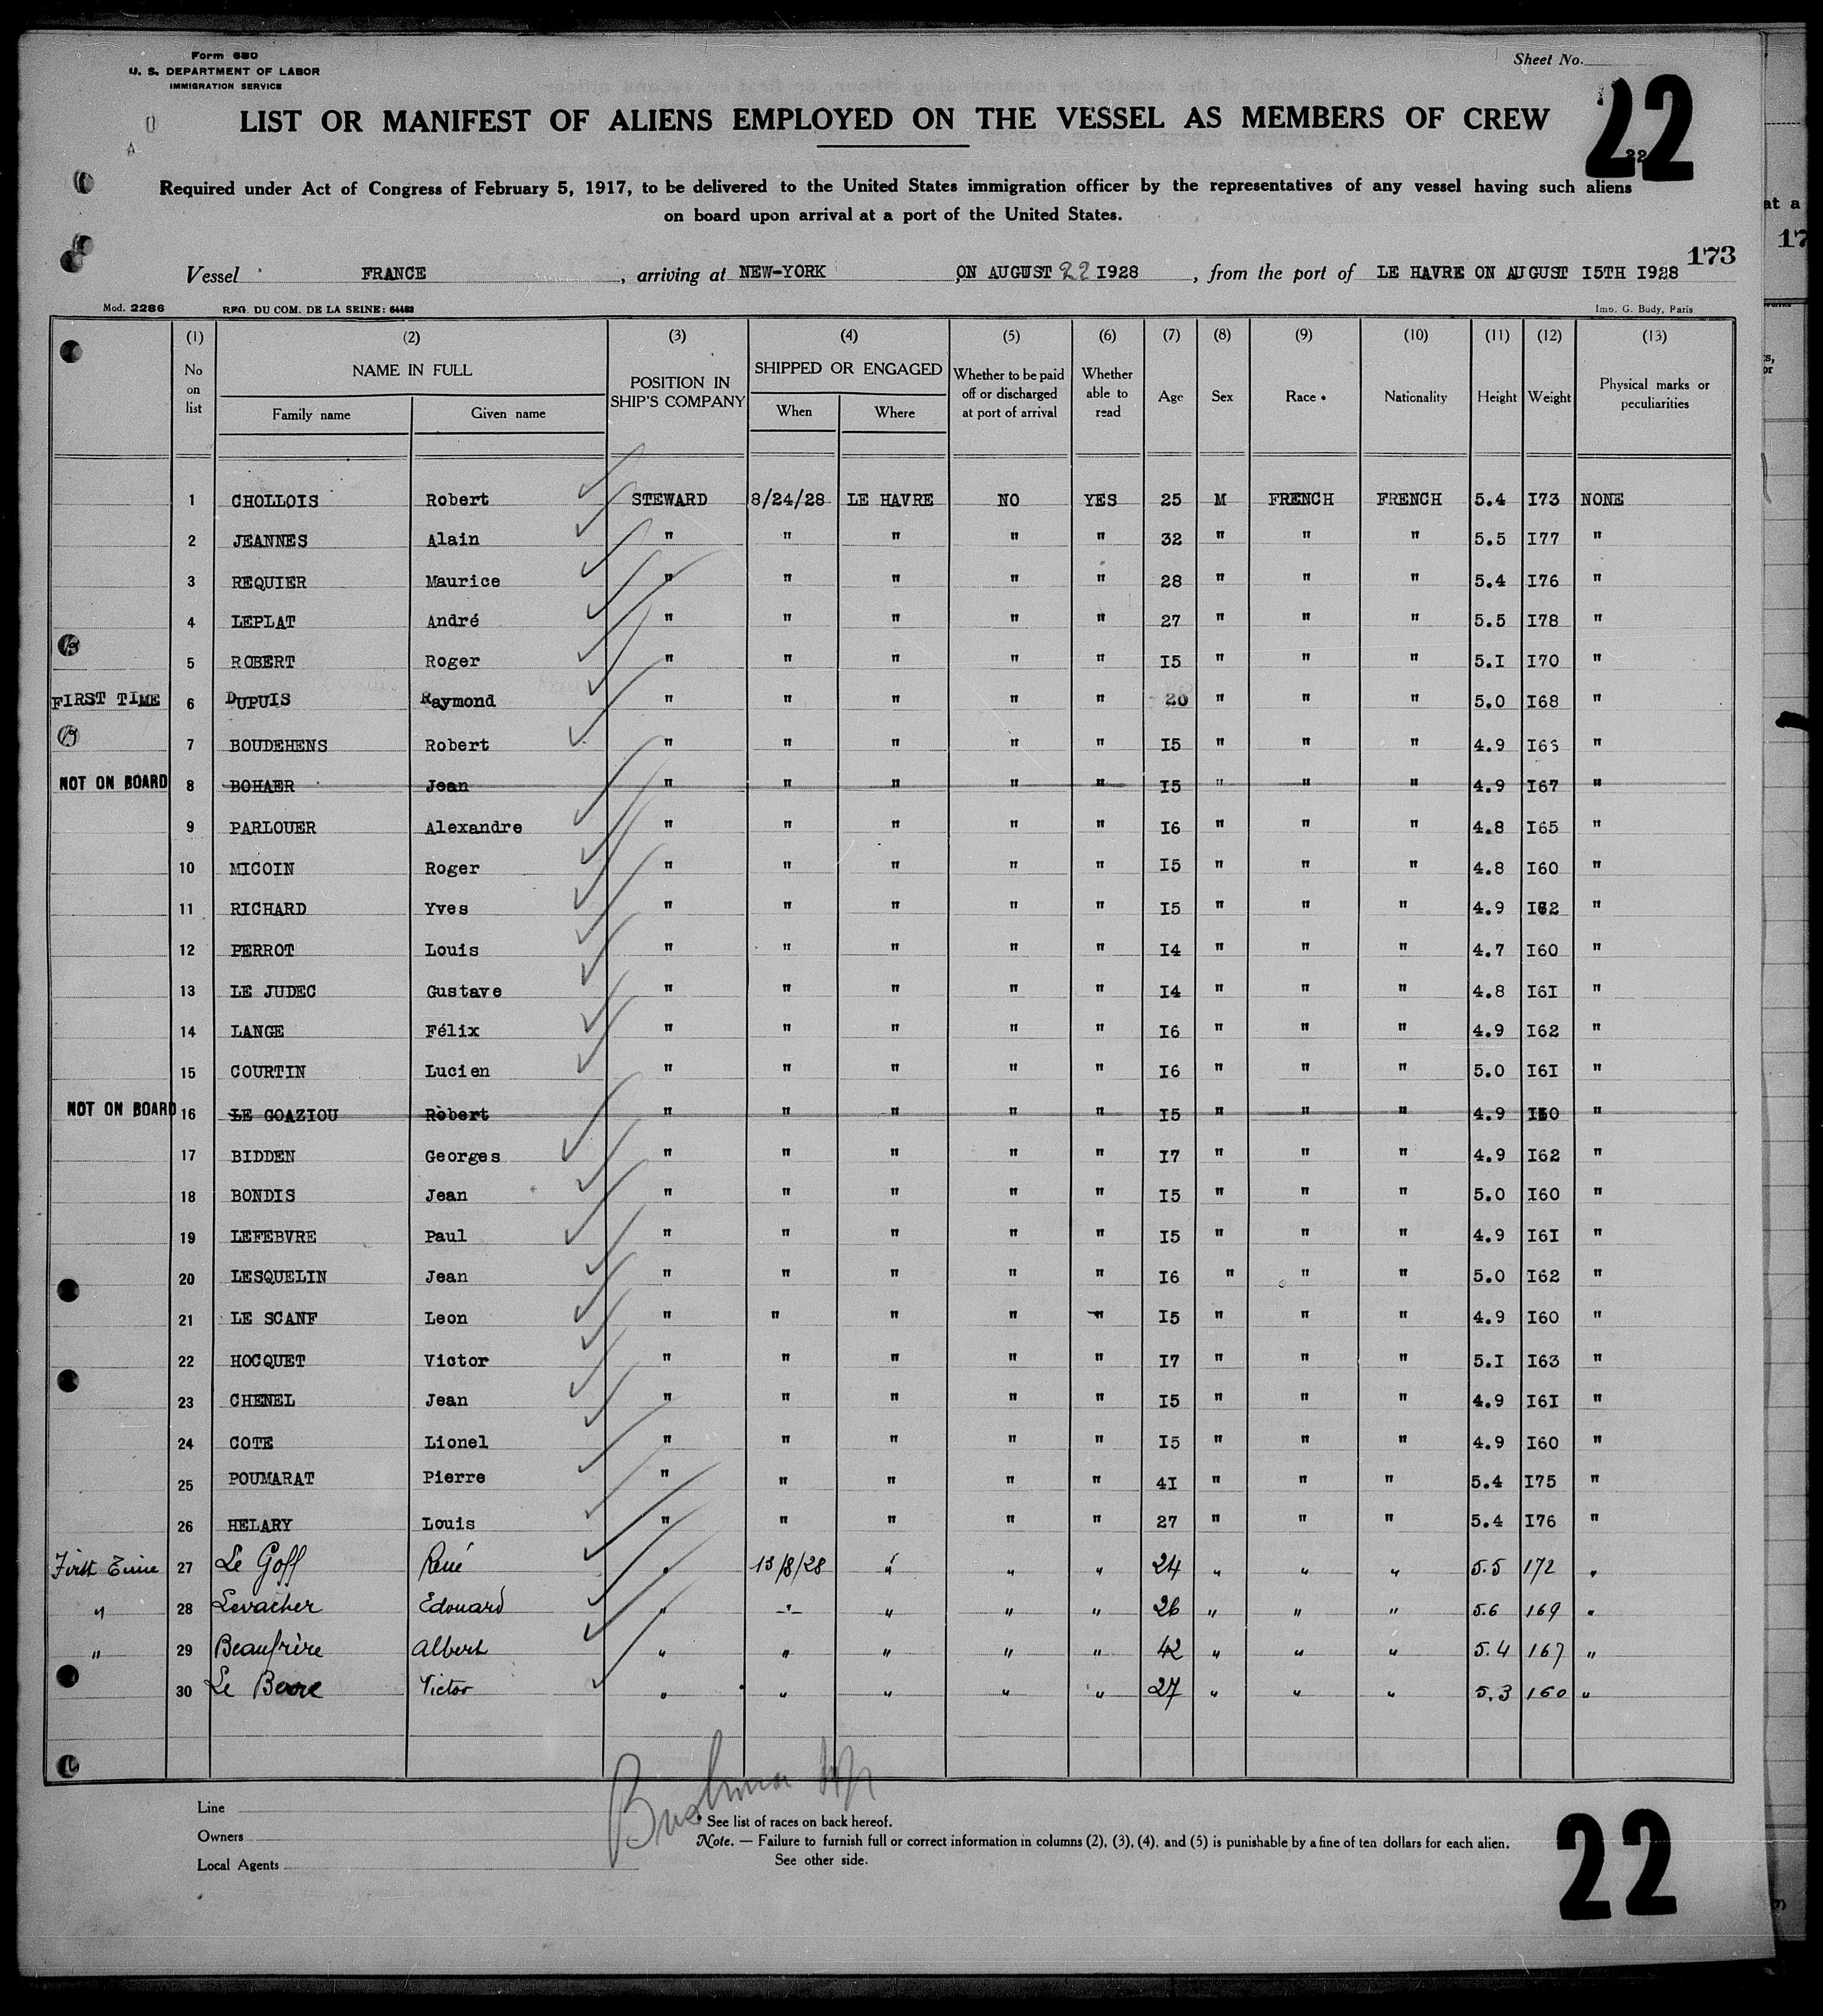 Form 680
U. S. DEPARTMENT OF LABOR
IMMIGRATION SERVICE
Sheet No.
22
LIST OR MANIFEST OF ALIENS EMPLOYED ON THE VESSEL AS MEMBERS OF CREW
22
Required under Act of Congress of February 5, 1917, to be delivered to the United States immigration officer by the representatives of any vessel having such aliens
on board upon arrival at a port of the United States.
173
Vessel FRANCE, arriving at NEW-YORK, ON AUGUST 22 I928, from the port of LE HAVRE ON AUGUST I5TH I928
Mod. 2286 REG. DU COM. DE LA SEINE: 64483 Imp. G. Budy, Paris
(1) (2) (3) (4) (5) (6) (7) (8) (9) (10) (11) (12) (13)
No on list NAME IN FULL Family name Given name POSITION IN SHIP'S COMPANY SHIPPED OR ENGAGED When Where Whether to be paid off or discharged at port of arrival Whether able to read Age Sex Race * Nationality Height Weight Physical marks or peculiarities
1 CHOLLOIS Robert STEWARD 8/24/28 LE HAVRE NO YES 25 M FRENCH FRENCH 5.4 I73 NONE
2 JEANNES Alain " " " " " 32 " " " 5.5 I77 "
3 REQUIER Maurice " " " " " 28 " " " 5.4 I76 "
4 LEPLAT André " " " " " 27 " " " 5.5 I78 "
5 ROBERT Roger " " " " " I5 " " " 5.I I70 "
FIRST TIME 6 DUPUIS Raymond " " " " " 20 " " " 5.0 I68 "
7 BOUDEHENS Robert " " " " " I5 " " " 4.9 "
NOT ON BOARD 8 BOHAER Jean " " " " " I5 " " " 4.9 I67 "
9 PARLOUER Alexandre " " " " " I6 " " " 4.8 I65 "
10 MICOIN Roger " " " " " I5 " " " 4.8 I60 "
11 RICHARD Yves " " " " " I5 " " " 4.9 I62 "
12 PERROT Louis " " " " " I4 " " " 4.7 I60 "
13 LE JUDEC Gustave " " " " " I4 " " " 4.8 I6I "
14 LANGE Félix " " " " " I6 " " " 4.9 I62 "
15 COURTIN Lucien " " " " " I6 " " " 5.0 I6I "
NOT ON BOARD 16 LE GOAZIOU Robert " " " " " I5 " " " 4.9 "
17 BIDDEN Georges " " " " " I7 " " " 4.9 I62 "
18 BONDIS Jean " " " " " I5 " " " 5.0 I60 "
19 LEFEBVRE Paul " " " " " I5 " " " 4.9 I6I "
20 LESQUELIN Jean " " " " " I6 " " " 5.0 I62 "
21 LE SCANF Leon " " " " " I5 " " " 4.9 I60 "
22 HOCQUET Victor " " " " " I7 " " " 5.I I63 "
23 CHENEL Jean " " " " " I5 " " " 4.9 I6I "
24 COTE Lionel " " " " " I5 " " " 4.9 I60 "
25 POUMARAT Pierre " " " " " 4I " " " 5.4 I75 "
26 HELARY Louis " " " " " 27 " " " 5.4 I76 "
First Time 27 Le Goff René " 13/8/28 " " " 24 " " " 5.5 172 "
" 28 Levacher Edouard " " " " " 26 " " " 5.6 169 "
" 29 Beaufrère Albert " " " " " 42 " " " 5.4 167 "
30 Le Berre Victor " " " " " 27 " " " 5.3 160 "
Line
Owners
Local Agents
* See list of races on back hereof.
Note. — Failure to furnish full or correct information in columns (2), (3), (4), and (5) is punishable by a fine of ten dollars for each alien.
See other side.
22